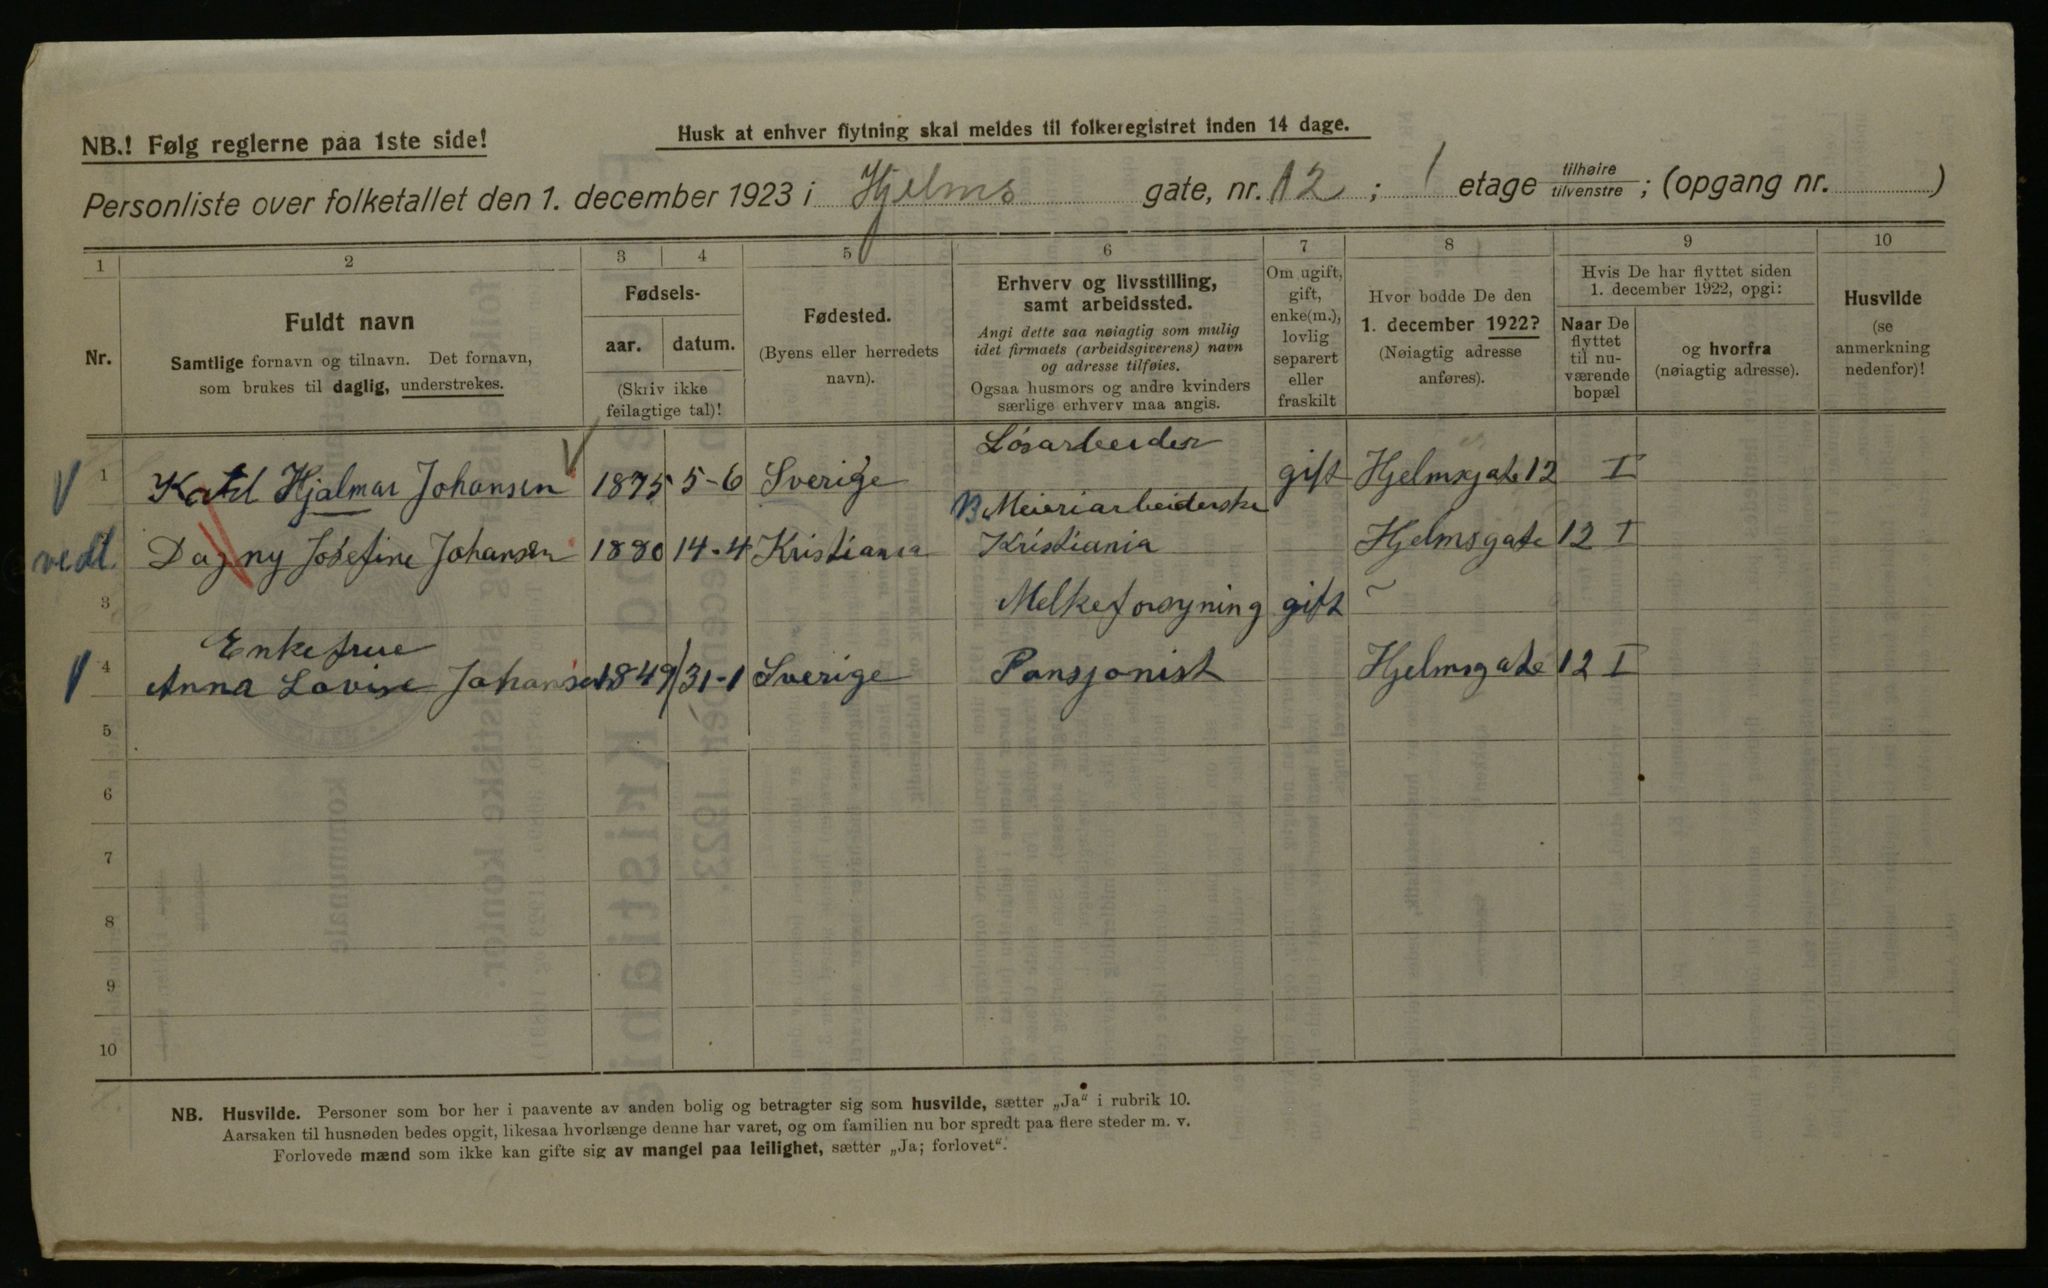 NB.! Følg reglerne paa 1ste side!
Husk at enhver flytning skal meldes til folkeregistret inden 14 dage.
Personliste over folketallet den 1. december 1923 i Hjelms gate, nr. 12 ; 1 etage tilhøire tilvenstre ; (opgang nr. )
1 2 3 4 5 6 7 8 9 10
Nr.
Fuldt navn
Samtlige fornavn og tilnavn. Det fornavn,
som brukes til daglig, understrekes.
Fødsels-
aar. datum.
(Skriv ikke
feilagtige tal)!
Fødested.
(Byens eller herredets
navn).
Erhverv og livsstilling,
samt arbeidssted.
Angi dette saa nøiagtig som mulig
idet firmaets (arbeidsgiverens) navn
og adresse tilføies.
Ogsaa husmors og andre kvinders
særlige erhverv maa angis.
Om ugift,
gift,
enke(m.),
lovlig
separert
eller
fraskilt
Hvor bodde De den
1. december 1922?
(Nøiagtig adresse
anføres).
Hvis De har flyttet siden
1. december 1922, opgi:
Naar De
flyttet
til nu-
værende
bopæl
og hvorfra
(nøiagtig adresse).
Husvilde
(se
anmerkning
nedenfor)!
Løsarbeider
1 Karl Hjalmar Johansen 1875 5-6 Sverige gift Hjelmsgate 12 I
B Meieriarbeiderske
vedl. Dagny Josefine Johansen 1880 14-4 Kristiania Kristiania Hjelmsgate 12 I
3 Melkeforsyning gift ~
Enkefrue
4 Anna Lovise Johansen 1849 31-1 Sverige Pansjonist Hjelmsgate 12 I
5
6
7
8
9
10
NB. Husvilde. Personer som bor her i paavente av anden bolig og betragter sig som husvilde, sætter „Ja“ i rubrik 10.
Aarsaken til husnøden bedes opgit, likesaa hvorlænge denne har varet, og om familien nu bor spredt paa flere steder m. v.
Forlovede mænd som ikke kan gifte sig av mangel paa leilighet, sætter „Ja; forlovet“.